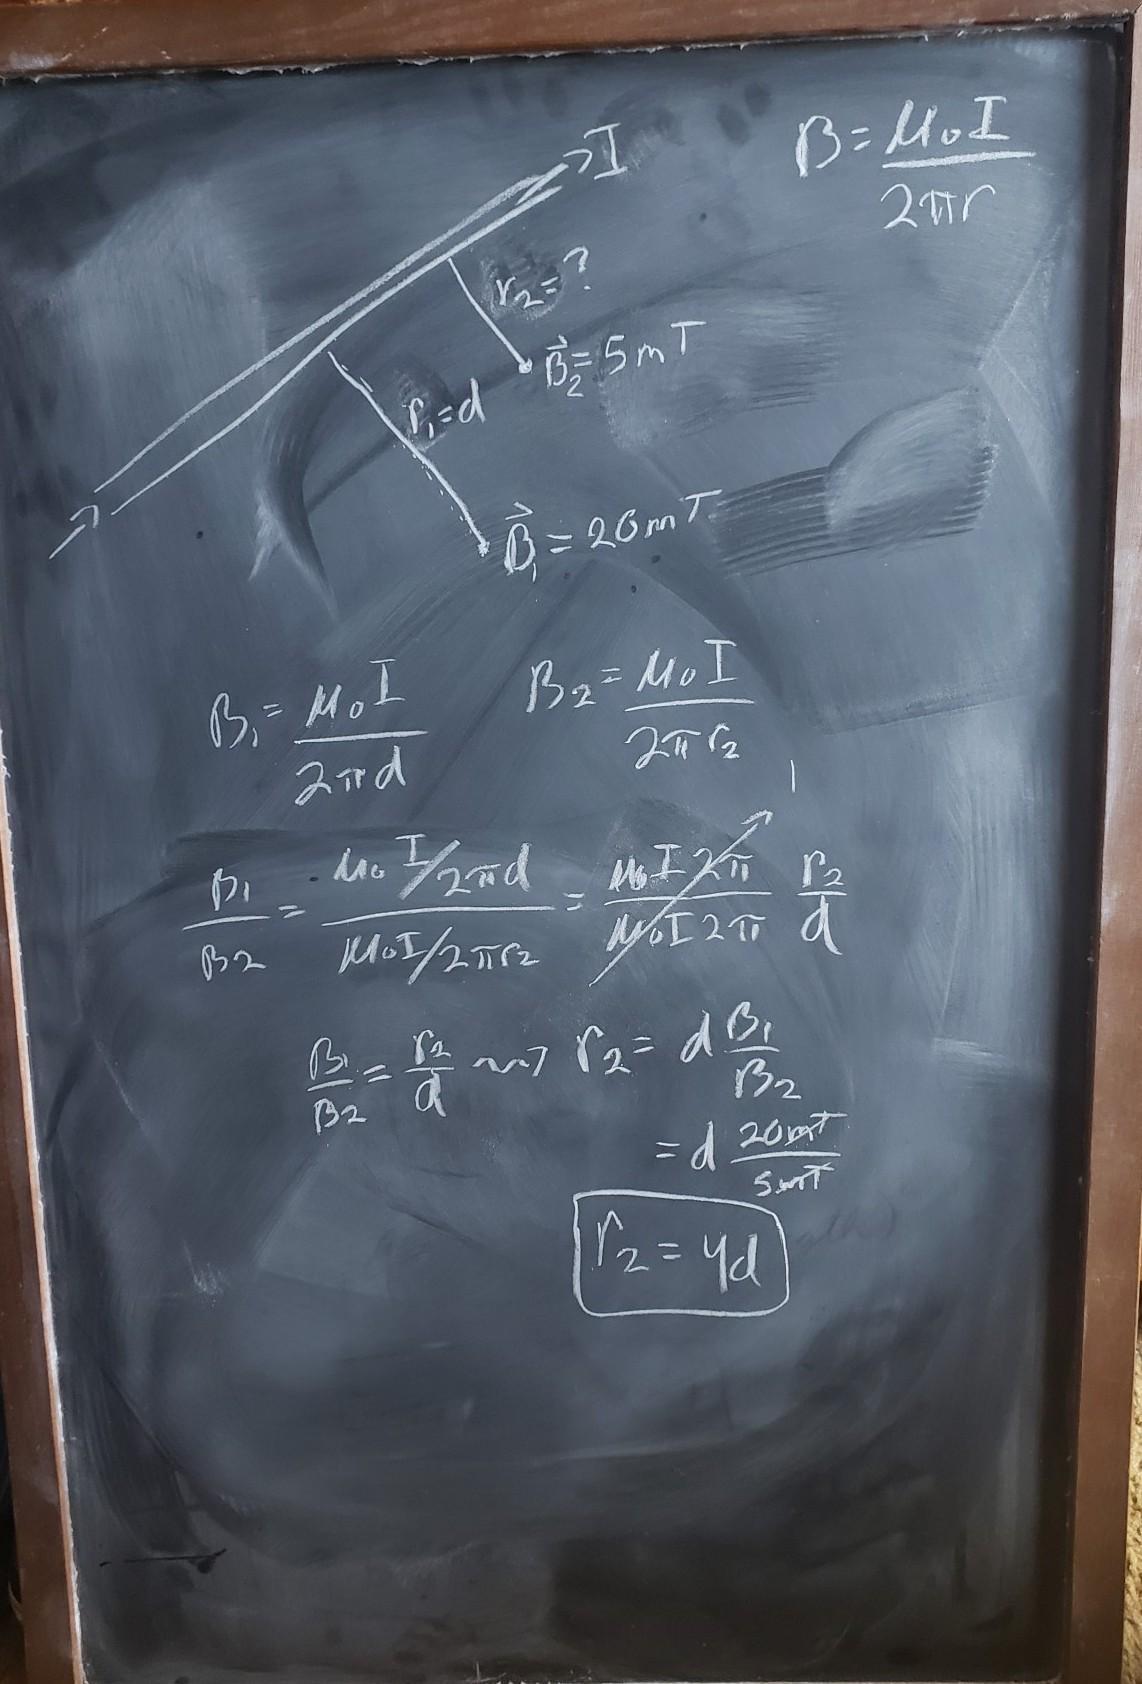 I
B = μ₀I / 2πr
r₂ = ?
B⃗₂ = 5mT
r₁ = d
B⃗₁ = 20mT
B₁ = μ₀I / 2πd
B₂ = μ₀I / 2πr₂
1
B₁/B₂ = (μ₀I/2πd) / (μ₀I/2πr₂) = (μ₀I2π / μ₀I2π) r₂/d
B₁/B₂ = r₂/d ⇝ r₂ = d B₁/B₂
= d 20mT/5mT
r₂ = 4d